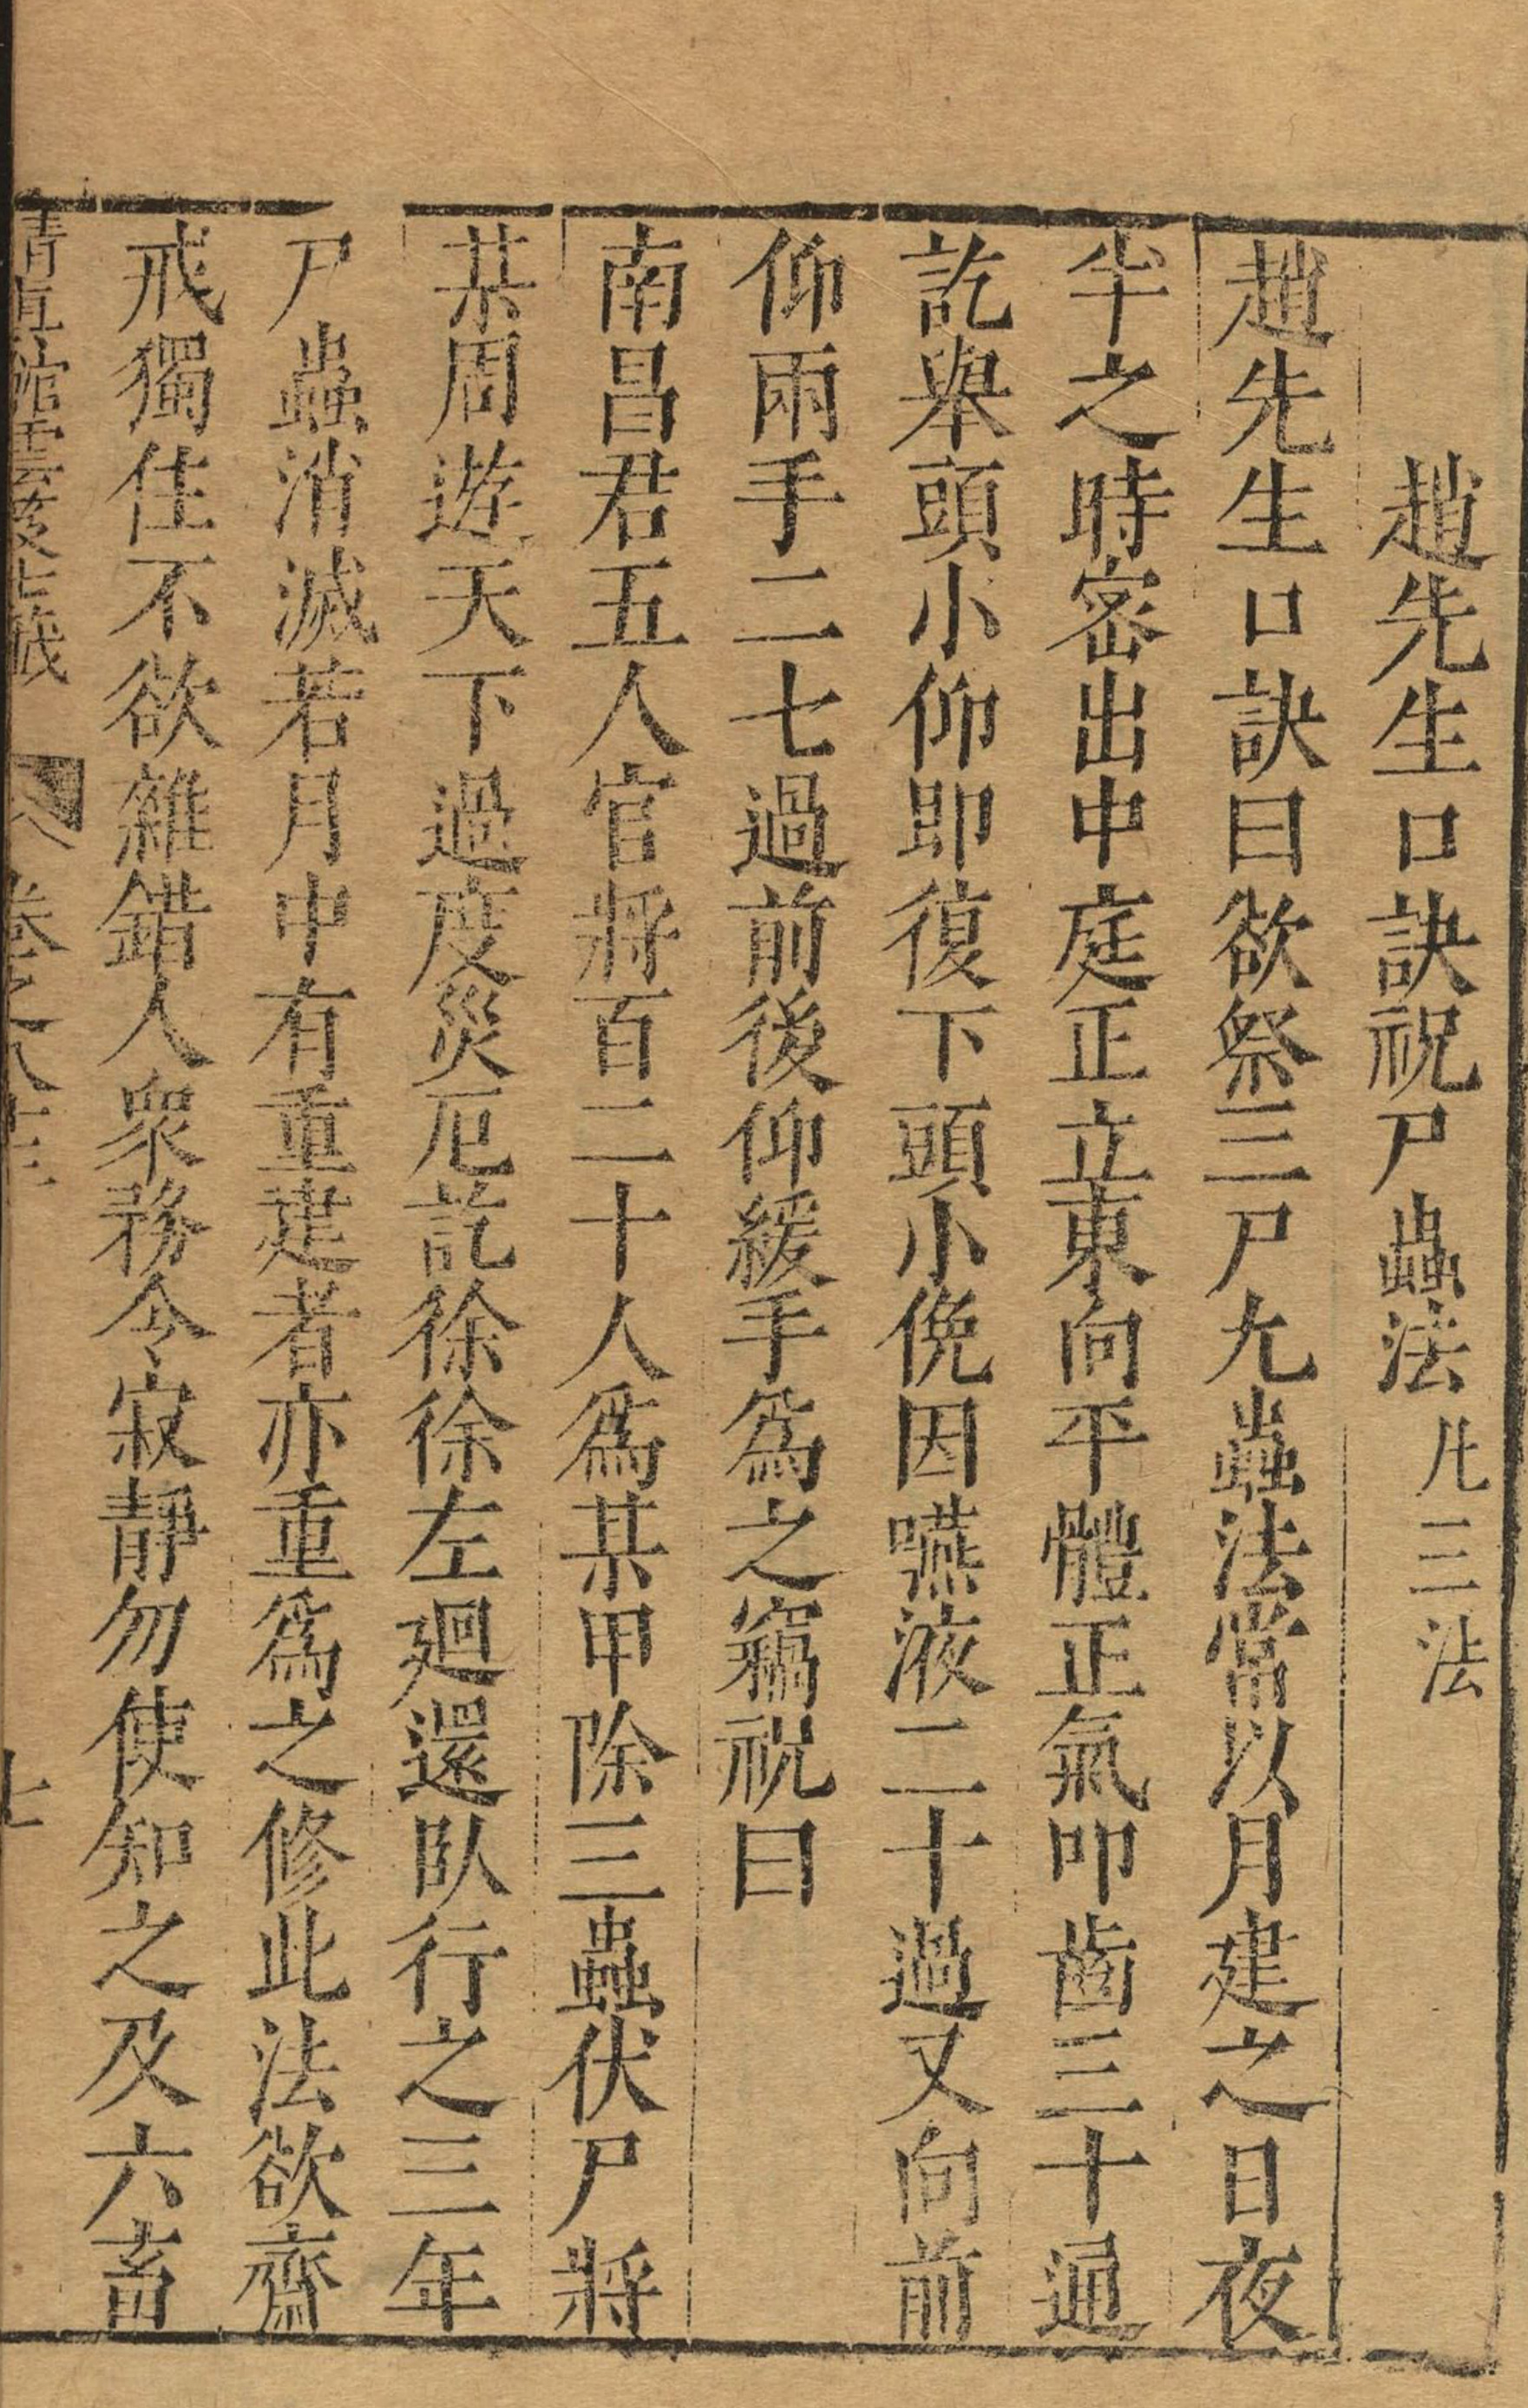 趙先生口訣祝尸蟲法凡三法
趙先生口訣曰欲祭三尸九蟲法常以月建之日夜
半之時密出中庭正立東向平體正氣叩齒三十通
訖舉頭小仰即復下頭小俛因嚥液二十過又向前
仰兩手二七過前後仰緩手爲之竊祝曰
南昌君五人官將百二十人爲某甲除三蟲伏尸將
某周遊天下過度災厄訖徐徐左廻還臥行之三年
尸蟲消滅若月中有重建者亦重爲之修此法欲齋
戒獨住不欲雜錯人衆務令寂靜勿使知之及六畜
清真館雲笈七籤 卷之八十三 七